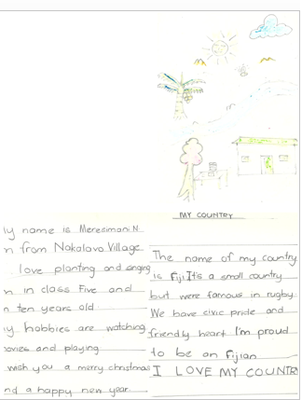 MY COUNTRY
ly name is Meresimani.N
n from Nakalavo Village
love planting and singing
n in class Five and
n ten years old
y hobbies are watching
ovies and playing
wish you a merry christmas
nd a happy new year
The name of my country
is Fiji. It's a small country
but were famous in rugby.
We have civic pride and
friendly heart I'm proud
to be an Fijian
I LOVE MY COUNTR